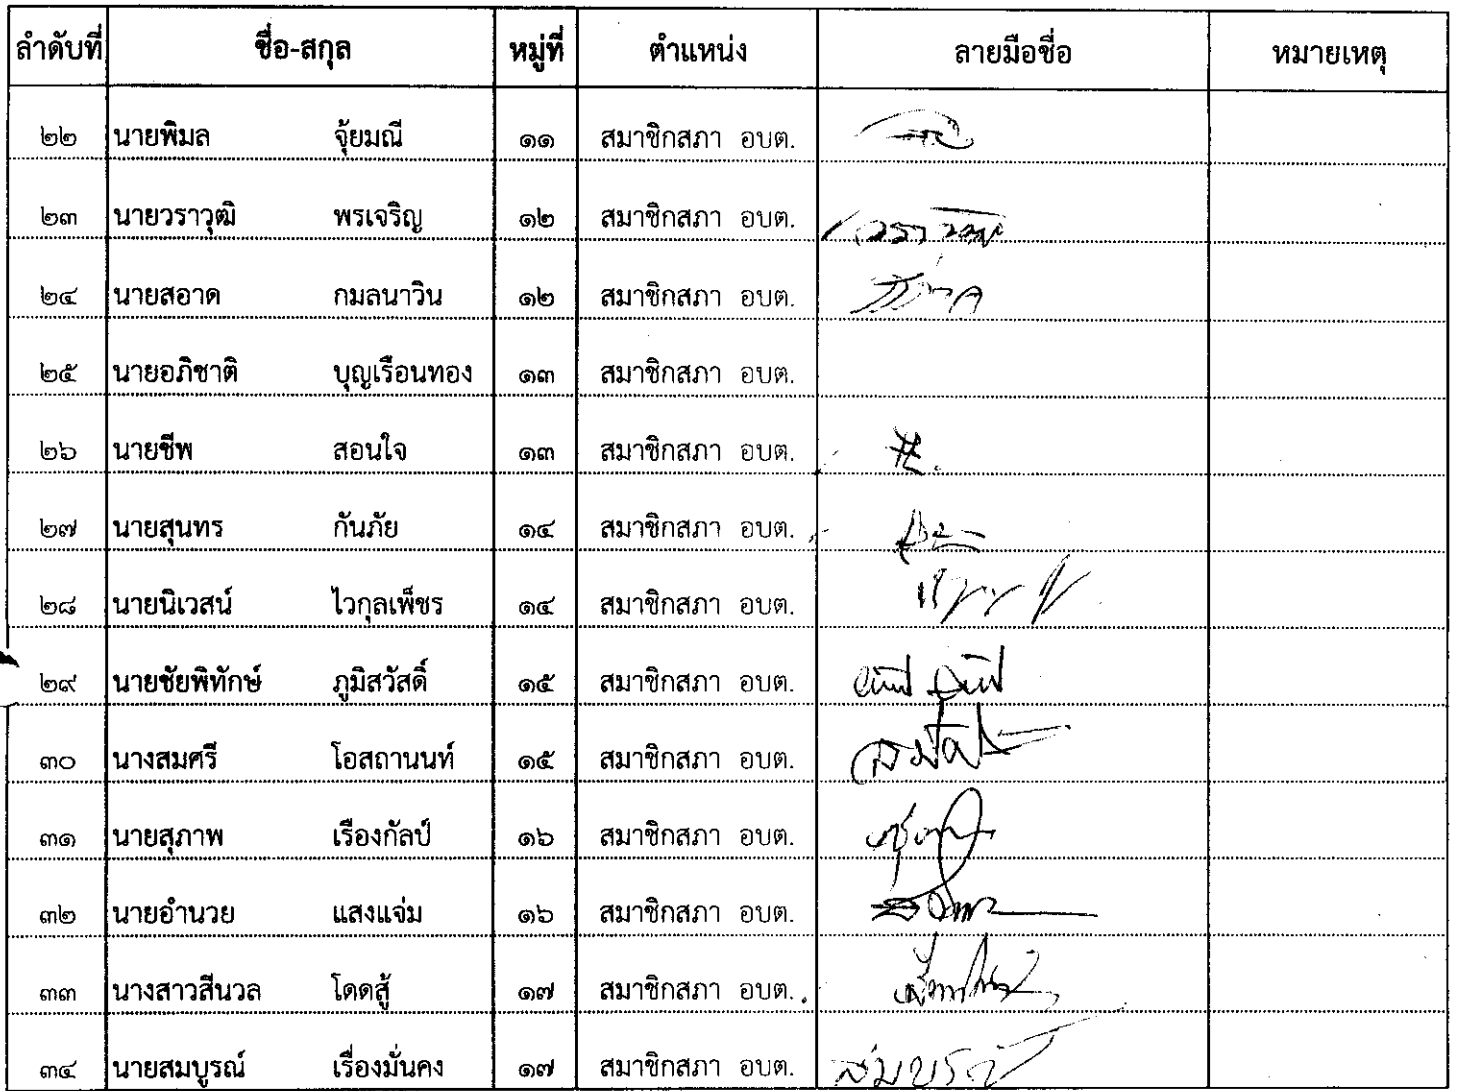 ลำดับที่ ชื่อ-สกุล หมู่ที่ ตำแหน่ง ลายมือชื่อ หมายเหตุ
๒๒ นายพิมล จุ้ยมณี ๑๑ สมาชิกสภา อบต.
๒๓ นายวราวุฒิ พรเจริญ ๑๒ สมาชิกสภา อบต.
๒๔ นายสอาด กมลนาวิน ๑๒ สมาชิกสภา อบต.
๒๕ นายอภิชาติ บุญเรือนทอง ๑๓ สมาชิกสภา อบต.
๒๖ นายชีพ สอนใจ ๑๓ สมาชิกสภา อบต.
๒๗ นายสุนทร กันภัย ๑๔ สมาชิกสภา อบต.
๒๘ นายนิเวสน์ ไวกุลเพ็ชร ๑๔ สมาชิกสภา อบต.
๒๙ นายชัยพิทักษ์ ภูมิสวัสดิ์ ๑๕ สมาชิกสภา อบต.
๓๐ นางสมศรี โอสถานนท์ ๑๕ สมาชิกสภา อบต.
๓๑ นายสุภาพ เรืองกัลป์ ๑๖ สมาชิกสภา อบต.
๓๒ นายอำนวย แสงแจ่ม ๑๖ สมาชิกสภา อบต.
๓๓ นางสาวสีนวล โดดสู้ ๑๗ สมาชิกสภา อบต.
๓๔ นายสมบูรณ์ เรื่องมั่นคง ๑๗ สมาชิกสภา อบต.